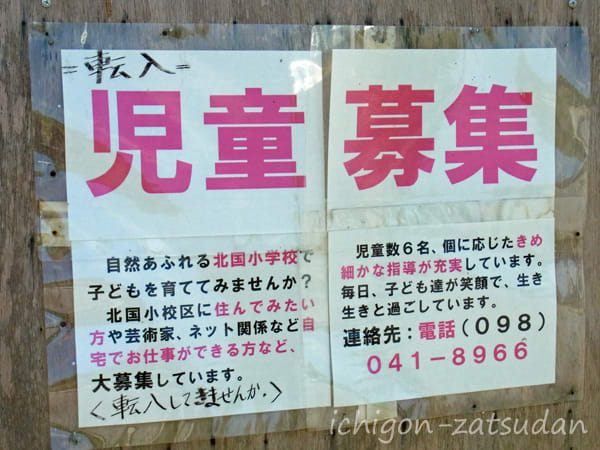 =転入=
児童募集
自然あふれる北国小学校で
子どもを育ててみませんか?
北国小校区に住んでみたい
方や芸術家、ネット関係など自
宅でお仕事ができる方など、
大募集しています。
〈転入してきませんか.〉
児童数6名、個に応じたきめ
細かな指導が充実しています。
毎日、子ども達が笑顔で、生き
生きと過ごしています。
連絡先:電話(098)
041-8966
ichigon-zatsudan